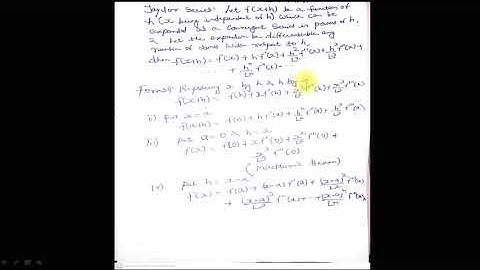 Taylor Series: Let f(x+h) be a function of
h (x being independent of h) which can be
expanded in a convergent series in powers of h,
& let the expansion be differentiable any
number of times with respect to h,
then f(x+h) = f(x) + h f'(x) + h²/⌊2 f''(x) + h³/⌊3 f'''(x) +
... + hⁿ/⌊n fⁿ(x) ...
Replacing x by h & h by x
f(x+h) = f(h) + x f'(h) + x²/⌊2 f''(h) + x³/⌊3 f'''(h)
ii) put x=a
f(a+h) = f(a) + h f'(a) + h²/⌊2 f''(a) + h³/⌊3 f'''(a)
iii) put a=0 & h=x
f(x) = f(0) + x f'(0) + x²/⌊2 f''(0) +
x³/⌊3 f'''(0)
(Maclaurin's Theorem)
put h = x-a
f(x) = f(a) + (x-a) f'(a) + (x-a)²/⌊2 f''(a)
+ (x-a)³/⌊3 f'''(a) + ... + (x-a)ⁿ/⌊n fⁿ(a)